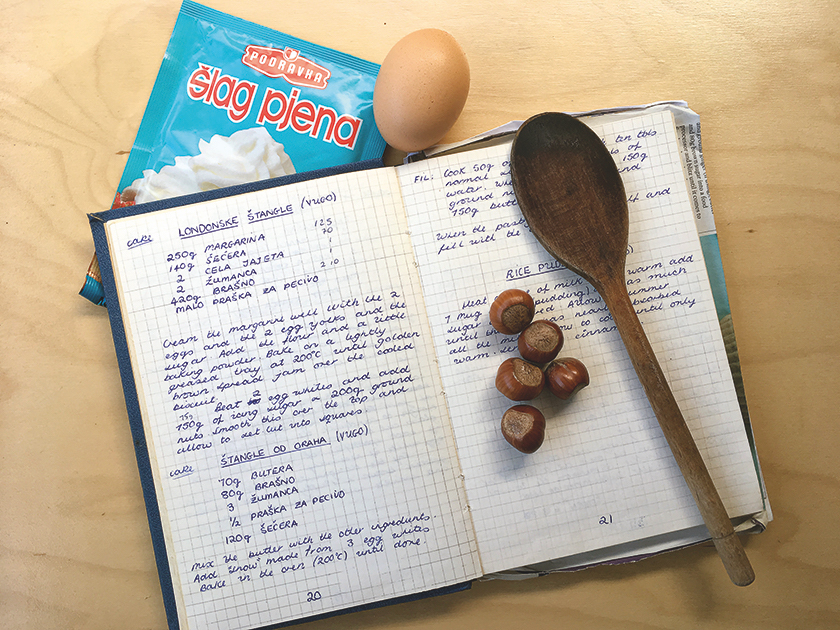 PODRAVKA
šlag pjena
CAKE LONDONSKE ŠTANGLE (VUGO)
250g MARGARINA 125
140g ŠEĆERA 70
2 CELA JAJETA 1
2 ŽUMANCA 1
420g BRAŠNO 210
MALO PRAŠKA ZA PECIVO
Cream the margarine well with the 2
eggs and the 2 egg yolks and the
sugar Add the flour and a little
baking powder. Bake on a lightly
greased tray at 200°C until golden
brown. Spread jam over the cooled
biscuit.
Beat 2 egg whites and add
150g of icing sugar & 200g ground
nuts smooth this over the top and
allow to set. Cut into squares.
CAKE ŠTANGLE OD ORAHA (VUGO)
70g BUTERA
80g BRAŠNO
3 ŽUMANCA
½ PRAŠKA ZA PECIVO
120g ŠEĆERA
Mix the butter with the other ingredients.
Add "snow" made from 3 egg whites
Bake in the oven (200°C) until done.
20
FIL: Cook 50g of ten this
normal of
water. 150g
ground and
150g butt
When the past lf and
fill with the
RICE PUD
Heat of milk warm add
1 mug pudding) as much
sugar Allow summer
until the was nearly absorbed
all the mil to cool until only
warm. cinnam
21